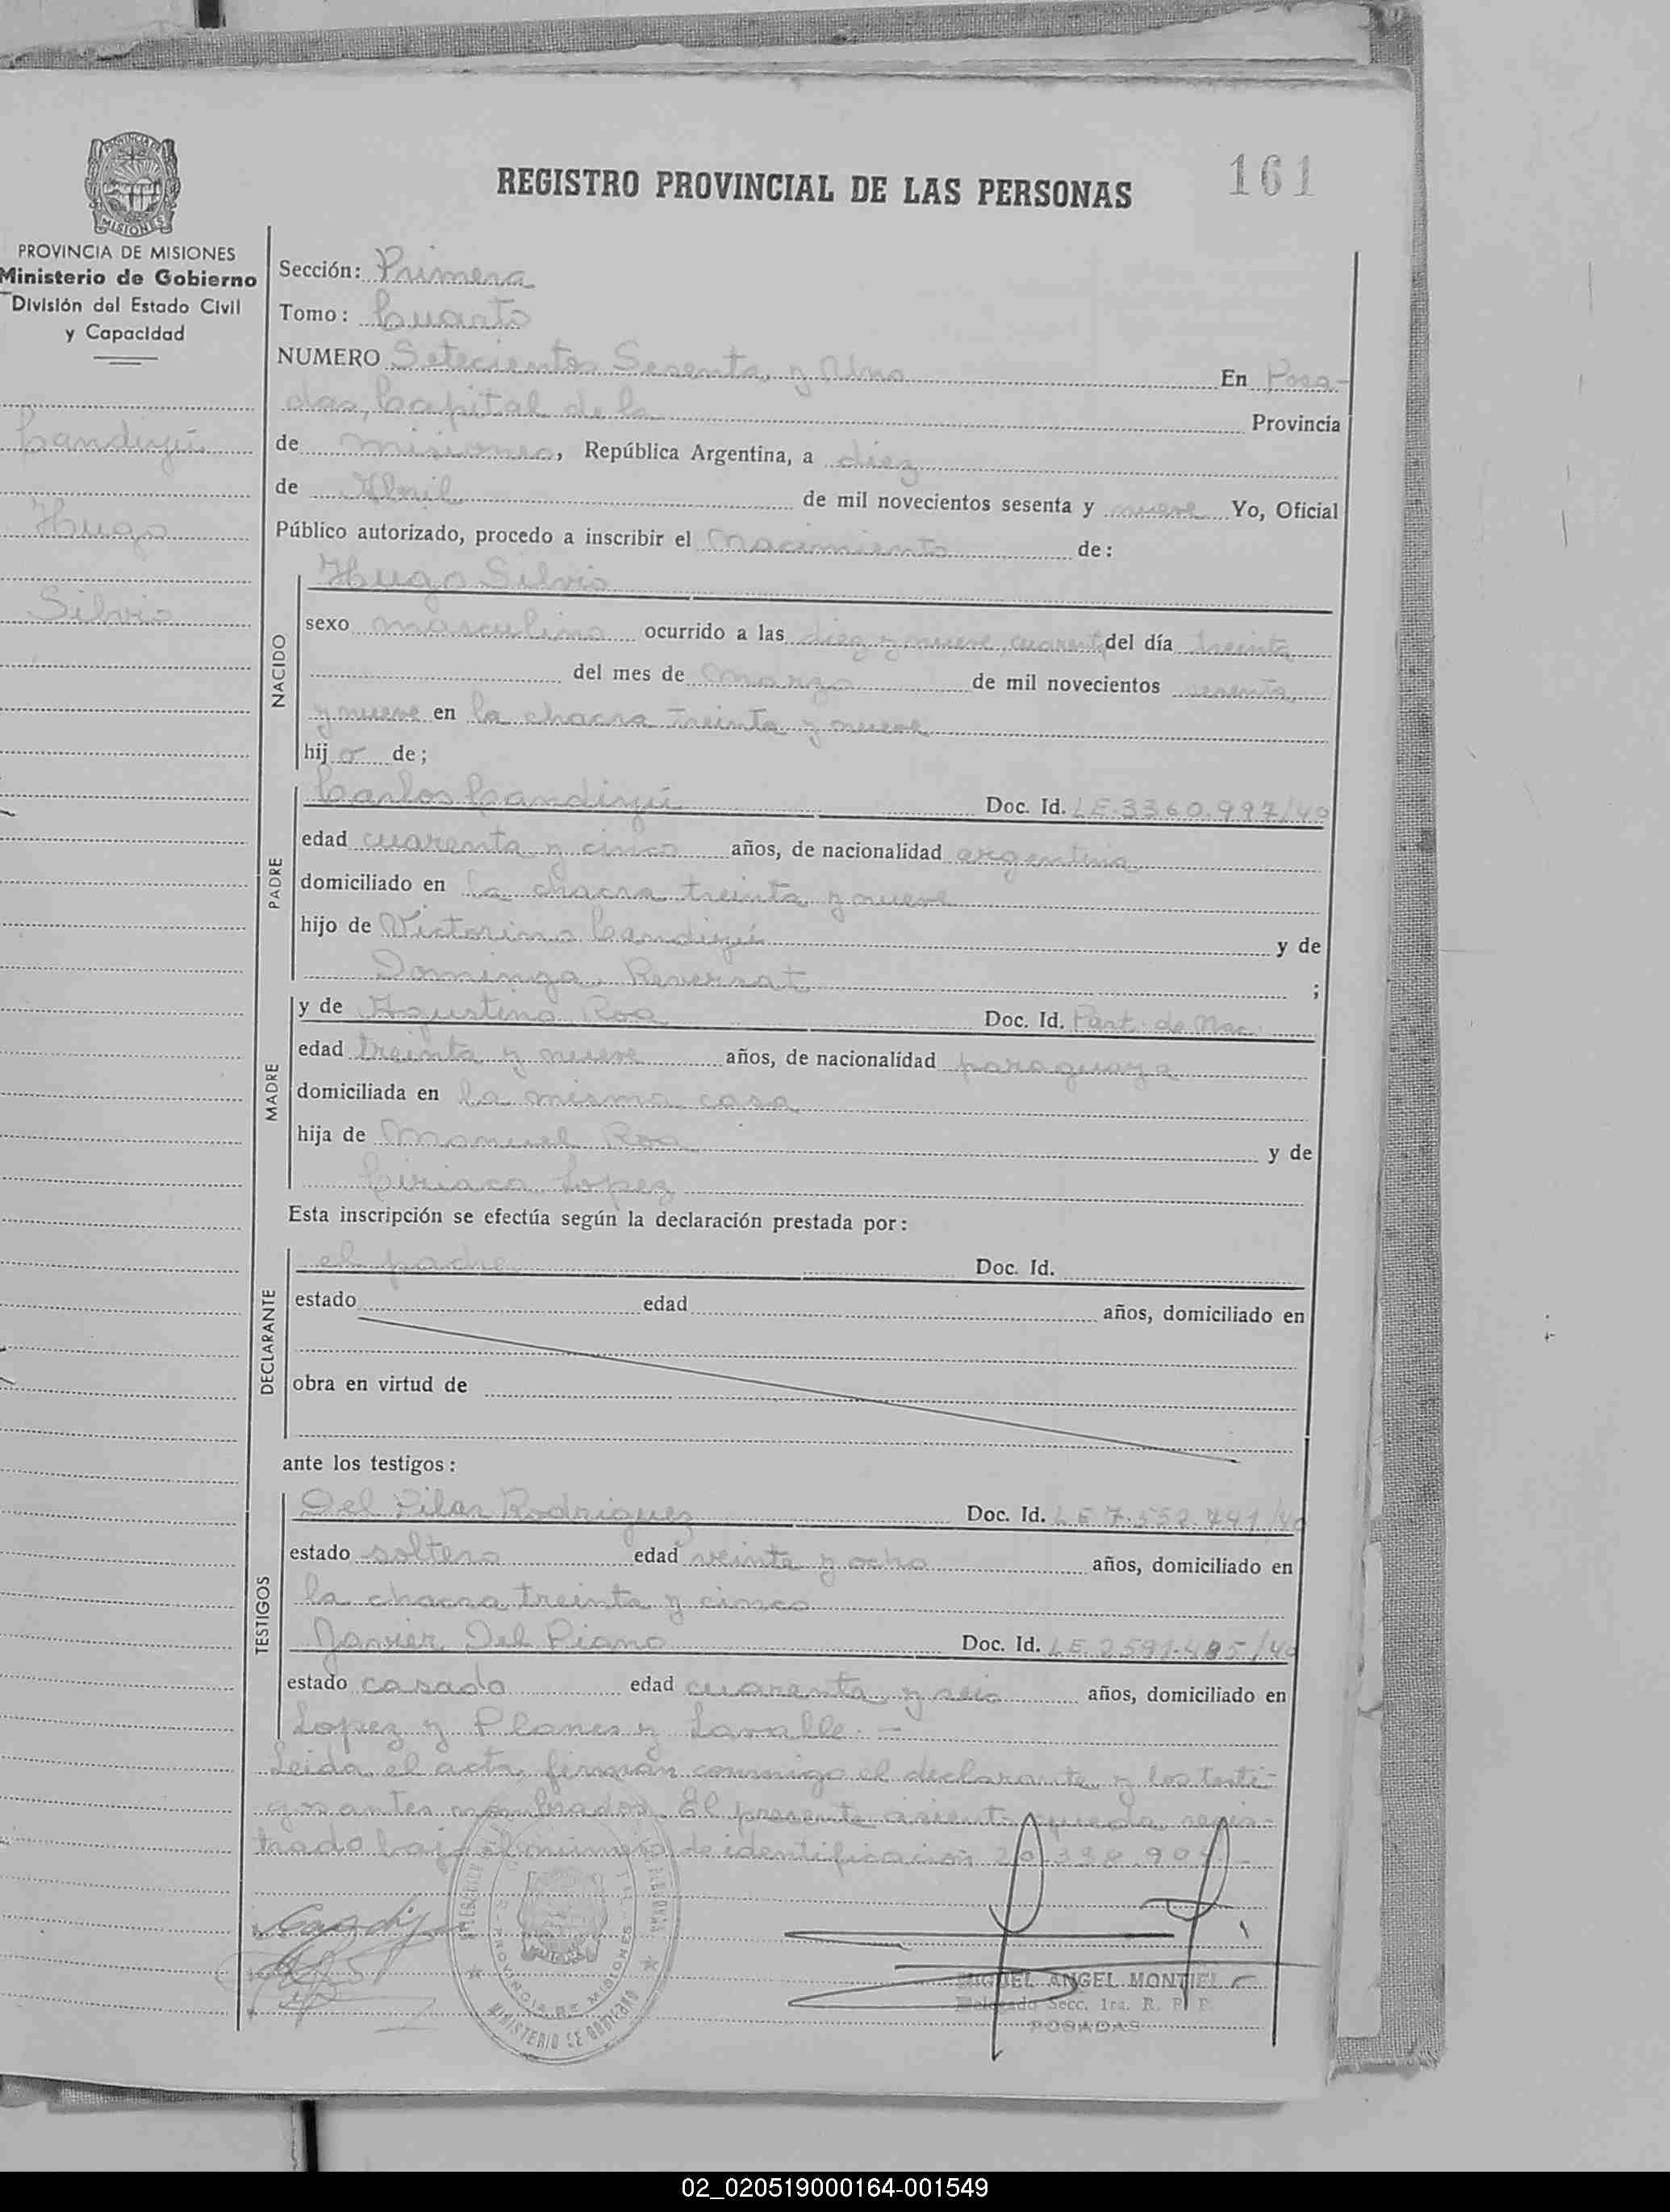 161
REGISTRO PROVINCIAL DE LAS PERSONAS
PROVINCIA DE MISIONES
Ministerio de Gobierno
División del Estado Civil
y Capacidad
Candiyú
Hugo
Silvio
Sección: Primera
Tomo: Cuarto
NUMERO Setecientos Sesenta y Uno En Posa-
das, Capital de la Provincia
de Misiones, República Argentina, a diez
de Abril de mil novecientos sesenta y nueve Yo, Oficial
Público autorizado, procedo a inscribir el Nacimiento de:
NACIDO
Hugo Silvio
sexo masculino ocurrido a las diez y nueve, cuarenta del día treinta
del mes de Marzo de mil novecientos sesenta
y nueve en la chacra treinta y nueve
hijo de;
PADRE
Carlos Candiyú Doc. Id. LE.3360.997/40
edad cuarenta y cinco años, de nacionalidad argentina
domiciliado en la chacra treinta y nueve
hijo de Victorino Candiyú y de
Dominga ;
MADRE
y de Agustina Roa Doc. Id. Part. de Nac.
edad treinta y nueve años, de nacionalidad paraguaya
domiciliada en la misma casa
hija de Manuel Roa y de
Ciriaca Lopez
Esta inscripción se efectúa según la declaración prestada por:
DECLARANTE
el padre Doc. Id.
estado edad años, domiciliado en
obra en virtud de
ante los testigos:
TESTIGOS
Del Pilar Rodriguez Doc. Id. LE 7.552.441/40
estado soltero edad veinte y ocho años, domiciliado en
la chacra treinta y cinco
Javier Del Piano Doc. Id. LE.2591.485/40
estado casado edad cuarenta y seis años, domiciliado en
Lopez y Planes y Lavalle.-
Leida el acta, firman conmigo el declarante y los testi-
gos antes nombrados. El presente asiento queda regis-
trado bajo el número de identificación 20.338.904-
Candiyu
PROVINCIA DE MISIONES
MINISTERIO DE GOBIERNO
MIGUEL ANGEL MONTIEL
Delegado Secc. 1ra. R. P. P.
POSADAS
02_020519000164-001549